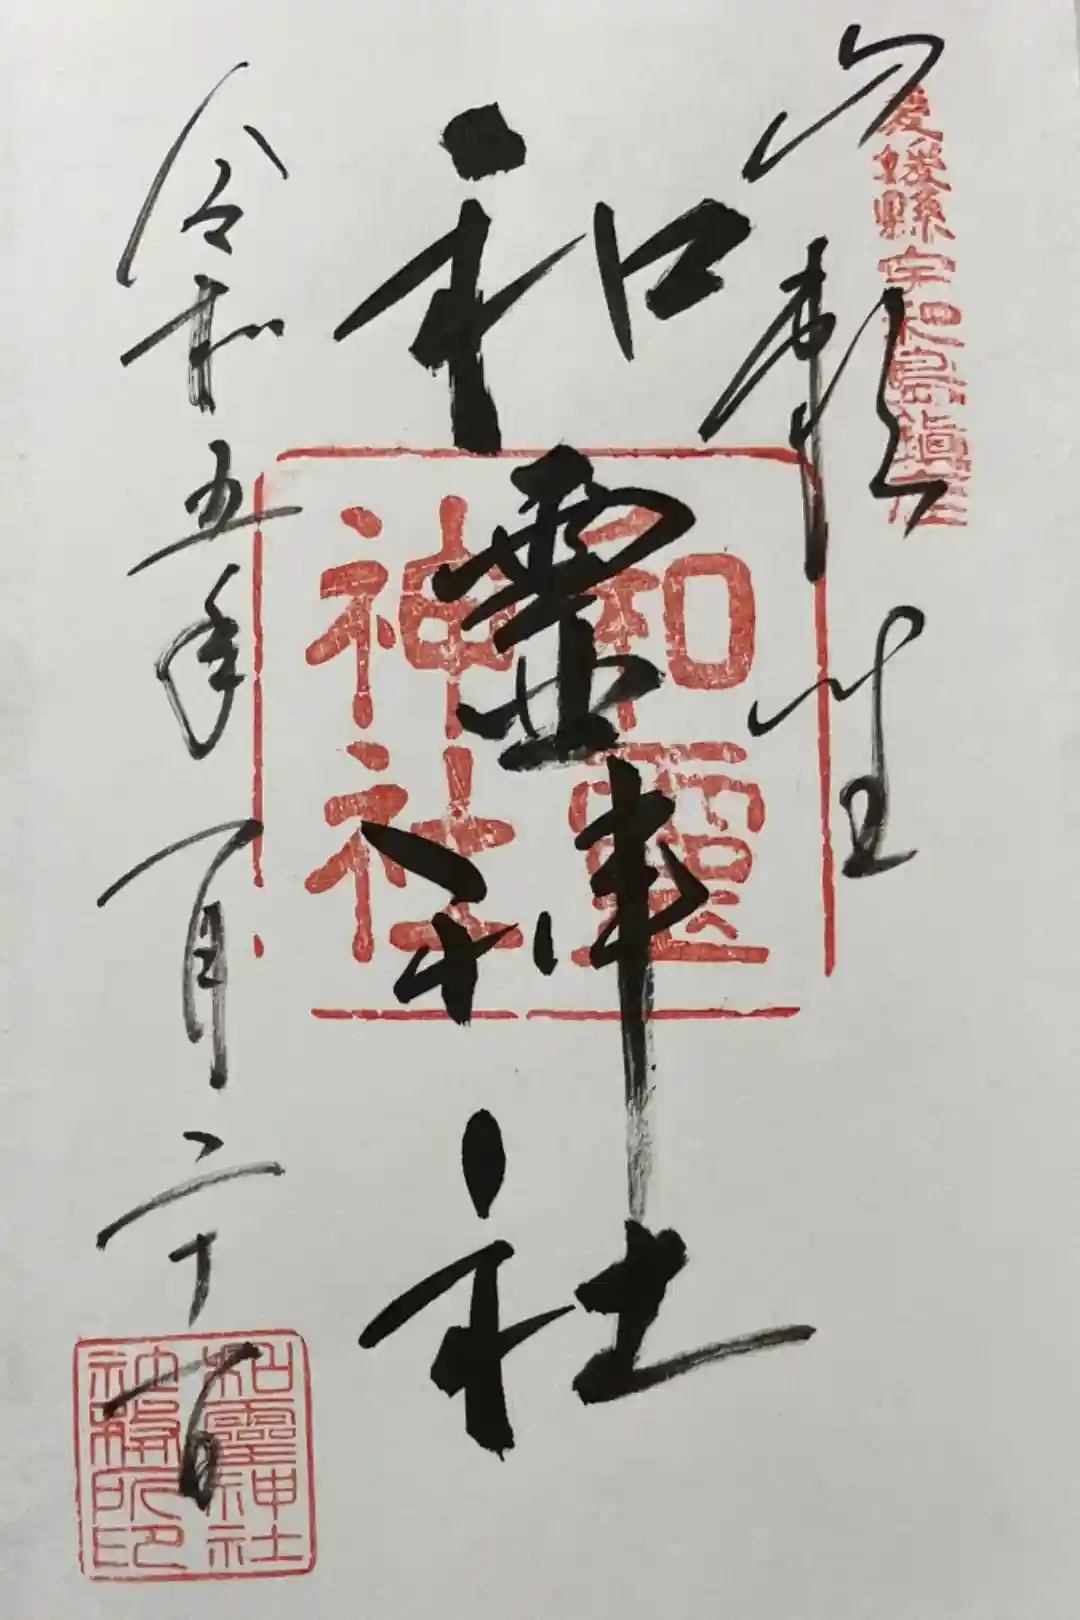 愛媛縣宇和島鎮座
和霊神社
和霊
神社
令和五年一月二十一日
和靈神社
社務所印